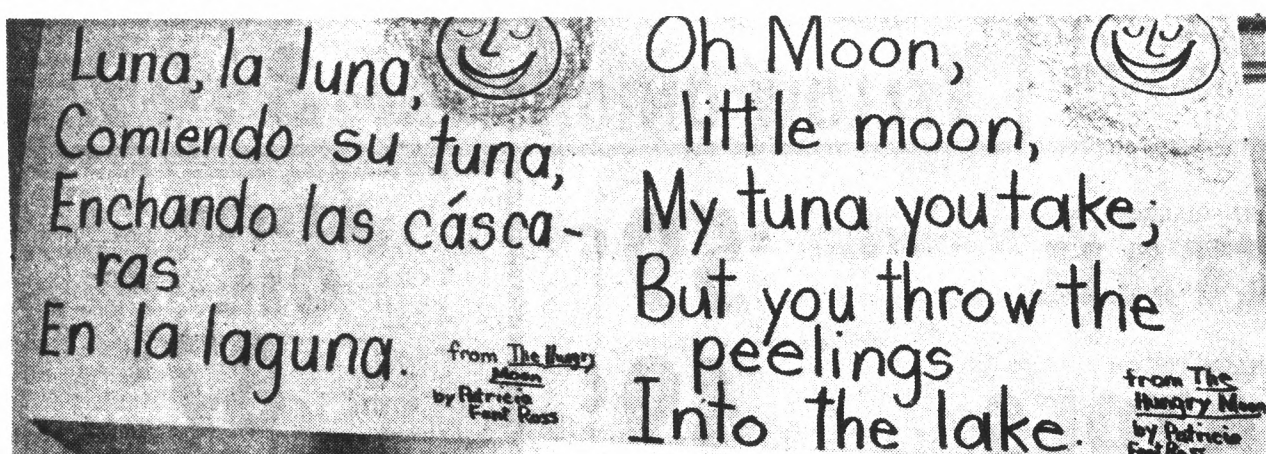 Luna, la luna,
Comiendo su tuna,
Enchando las cásca-
ras
En la laguna.
from The Hungry
Moon
by Patricia
Fent Ross
Oh Moon,
little moon,
My tuna you take;
But you throw the
peelings
Into the lake.
from The
Hungry Moon
by Patricia
Fent Ross